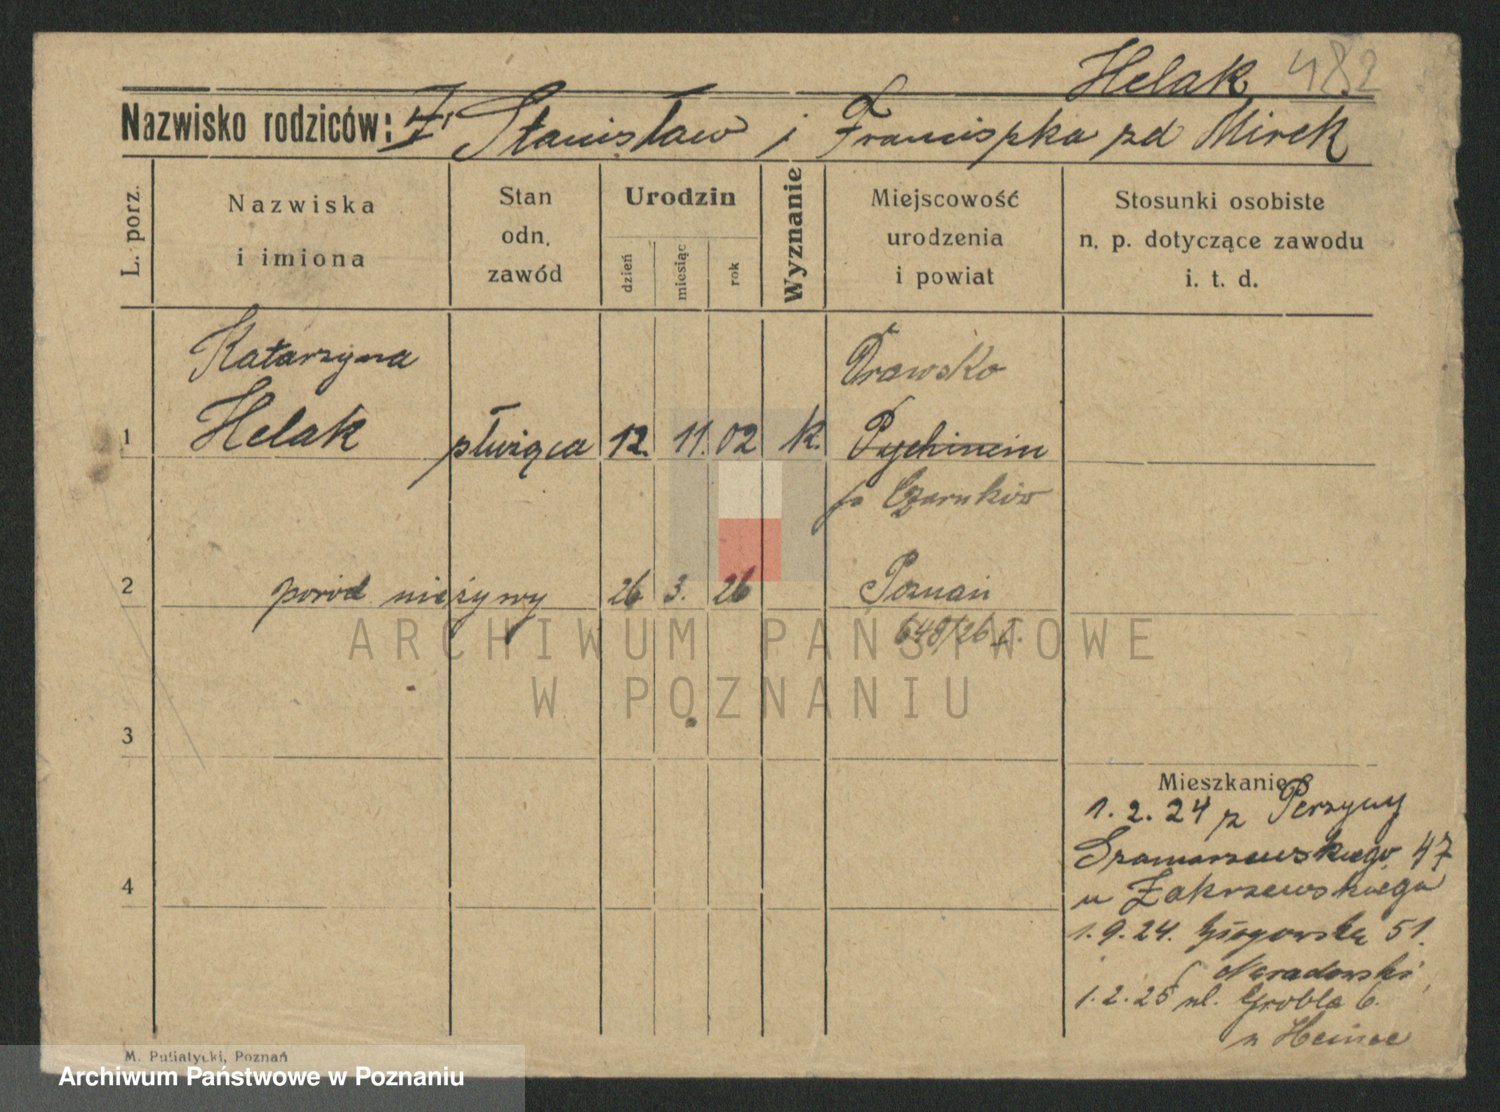 Helak 482
Nazwisko rodziców: Stanisław i Franciszka zd Mirek
L. porz.
Nazwiska
i imiona
Stan
odn.
zawód
Urodzin
dzień
miesiąc
rok
Wyznanie
Miejscowość
urodzenia
i powiat
Stosunki osobiste
n. p. dotyczące zawodu
i. t. d.
Katarzyna
Helak
1
służąca 12. 11. 02 k.
Drawsko
Pychincin
Czarnków
2 poród nieżywy 26 3. 26 Poznań
648/26 I.
ARCHIWUM PAŃSTWOWE
W POZNANIU
3
4
Mieszkanie
1.2.24 z Perzyny
Szamarzewskiego 47
u Zakrzewskiego
1.9.24. Głogowska 51.
Neradowski
1.2.25 ul. Grobla 6.
M. Putiatycki, Poznań
Archiwum Państwowe w Poznaniu